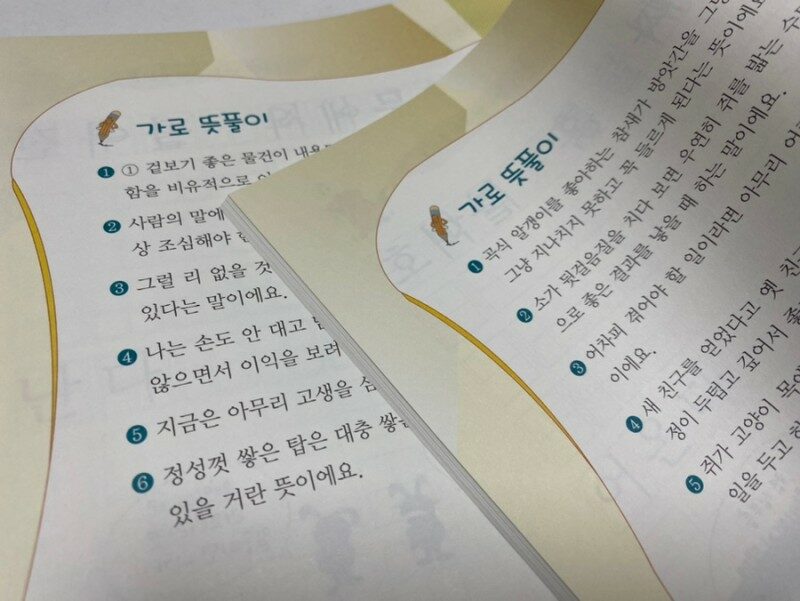 가로 뜻풀이
1 ① 겉보기 좋은 물건이 내용도
함을 비유적으로
2 사람의 말에
상 조심해야
3 그럴 리 없을 것
있다는 말이에요.
4 나는 손도 안 대고
않으면서 이익을 보려
5 지금은 아무리 고생을
6 정성껏 쌓은 탑은 대충
있을 거란 뜻이에요.
가로 뜻풀이
1 곡식 알갱이를 좋아하는 참새가 방앗간을
그냥 지나치지 못하고 꼭 들르게 된다는 뜻이에요
2 소가 뒷걸음질을 치다 보면 우연히 쥐를 밟는
으로 좋은 결과를 낳을 때 하는 말이에요.
3 어차피 겪어야 할 일이라면 아무리
이에요.
4 새 친구를 얻었다고 옛
정이 두텁고 깊어서
5 쥐가 고양이
일을 두고